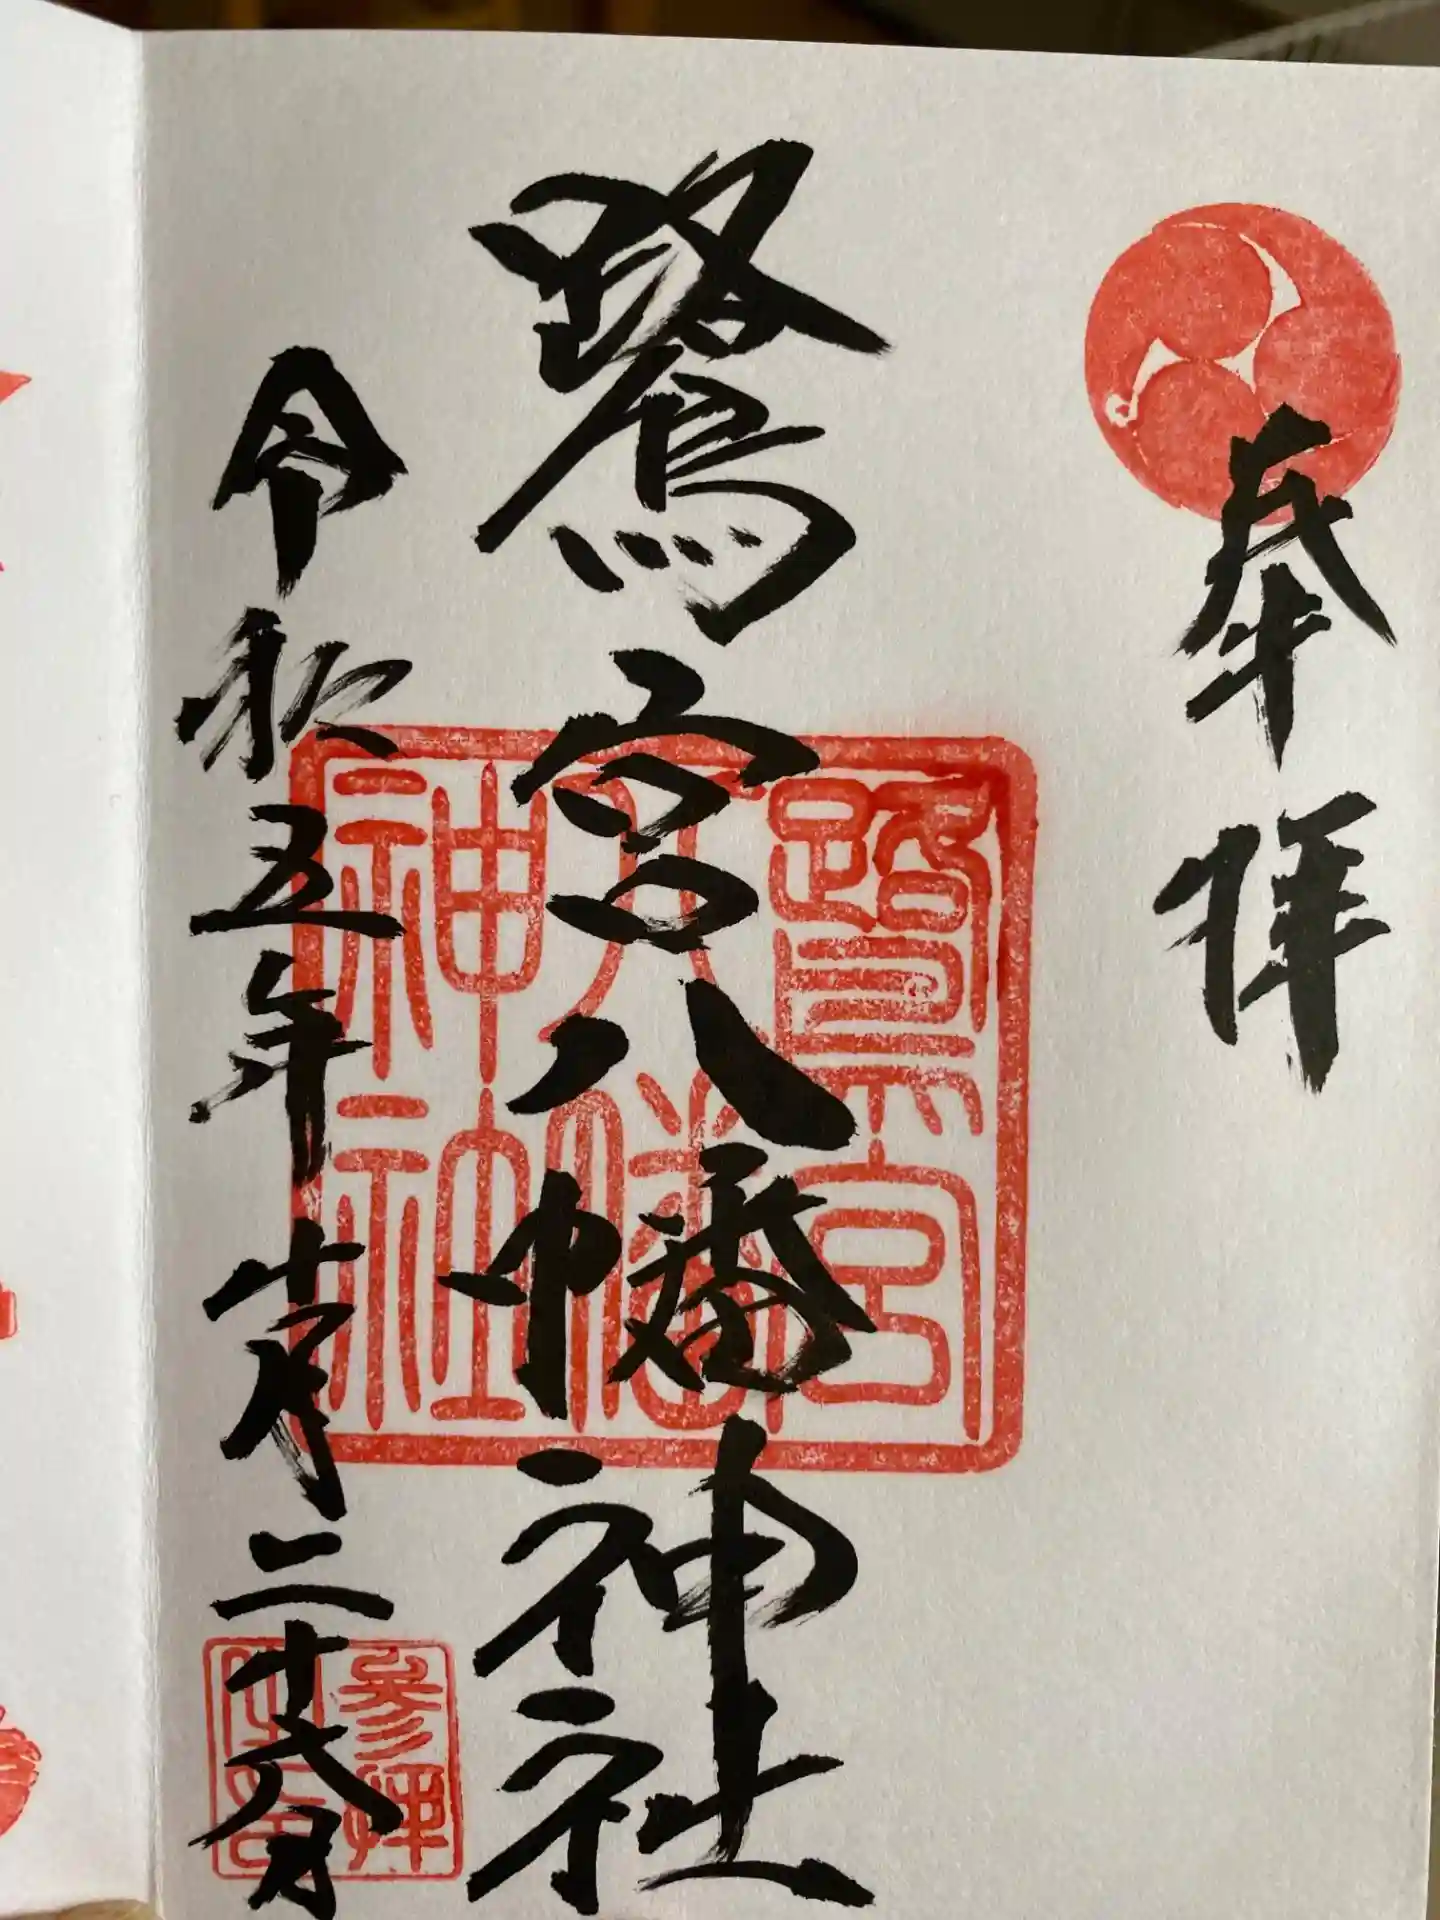 奉拝
鷺宮八幡神社
令和五年十一月二十八日
鷺宮
八幡
神社
参拝